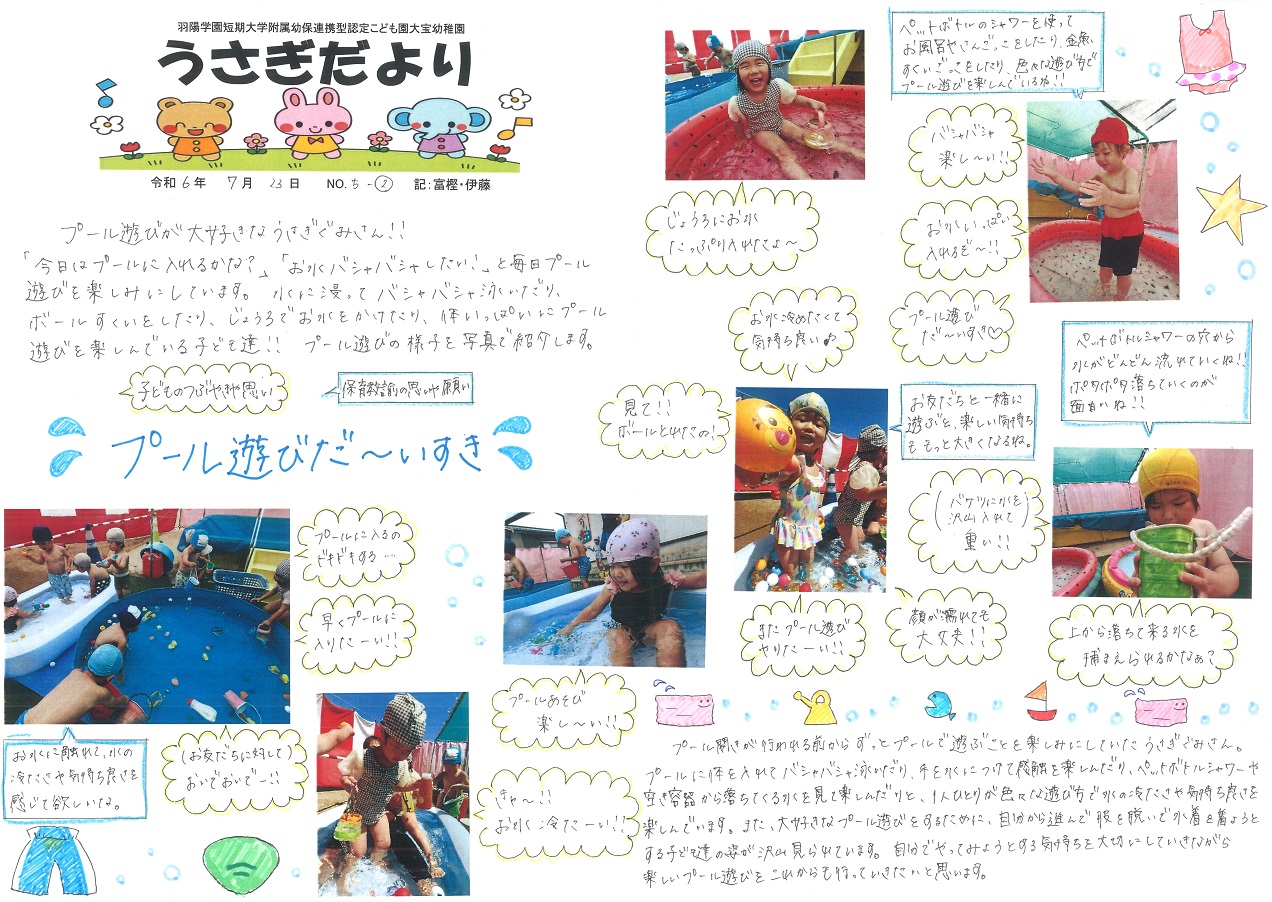 羽陽学園短期大学附属幼保連携型認定こども園大宝幼稚園
うさぎだより
令和6年 7月 23日 NO.5-② 記:富樫・伊藤
プール遊びが大好きなうさぎぐみさん!!
「今日はプールに入れるかな?」「お水バシャバシャしたい!」と毎日プール
遊びを楽しみにしています。 水に浸ってバシャバシャ泳いだり、
ボールすくいをしたり、じょうろでお水をかけたり、体いっぱいにプール
遊びを楽しんでいる子ども達!! プール遊びの様子を写真で紹介します。
子どものつぶやきや思い
保育教諭の思いや願い
プール遊びだ〜いすき
プールに入るの
ドキドキする…
早くプールに
入りたーい!!
お水に触れて、水の
冷たさや気持ち良さを
感じて欲しいな。
(お友だちに対して)
おいでおいでー!!
プールあそび
楽し〜い!!
きゃ〜!!
お水冷たーい!!
じょうろにお水
たっぷり入れたよ〜
ペットボトルのシャワーを使って
お風呂やさんごっこをしたり、金魚
すくいごっこをしたり、色々な遊び方で
プール遊びを楽しんでいるね!!
バシャバシャ
楽し〜い!!
お水いっぱい
入れるぞ〜!!
プール遊び
だ〜いすき♡
お水冷めたくて
気持ち良い♪
見て!!
ボールとれたの!
お友だちと一緒に
遊ぶと、楽しい気持ち
ももっと大きくなるね。
ペットボトルシャワーの穴から
水がどんどん流れていくね!!
ポタポタ落ちていくのが
面白いね!!
(バケツに水を
沢山入れて)
重い!!
またプール遊び
やりたーい!!
顔が濡れても
大丈夫!!
上から落ちて来る水を
捕まえられるかなぁ?
プール開きが行われる前からずっとプールで遊ぶことを楽しみにしていたうさぎぐみさん。
プールに体を入れてバシャバシャ泳いだり、手を水につけて感触を楽しんだり、ペットボトルシャワーや
空き容器から落ちてくる水を見て楽しんだりと、1人ひとりが色々な遊び方で水の冷たさや気持ち良さを
楽しんでいます。また、大好きなプール遊びをするために、自分から進んで服を脱いで水着を着ようと
する子ども達の姿が沢山見られています。自分でやってみようとする気持ちを大切にしていきながら
楽しいプール遊びをこれからも行っていきたいと思います。